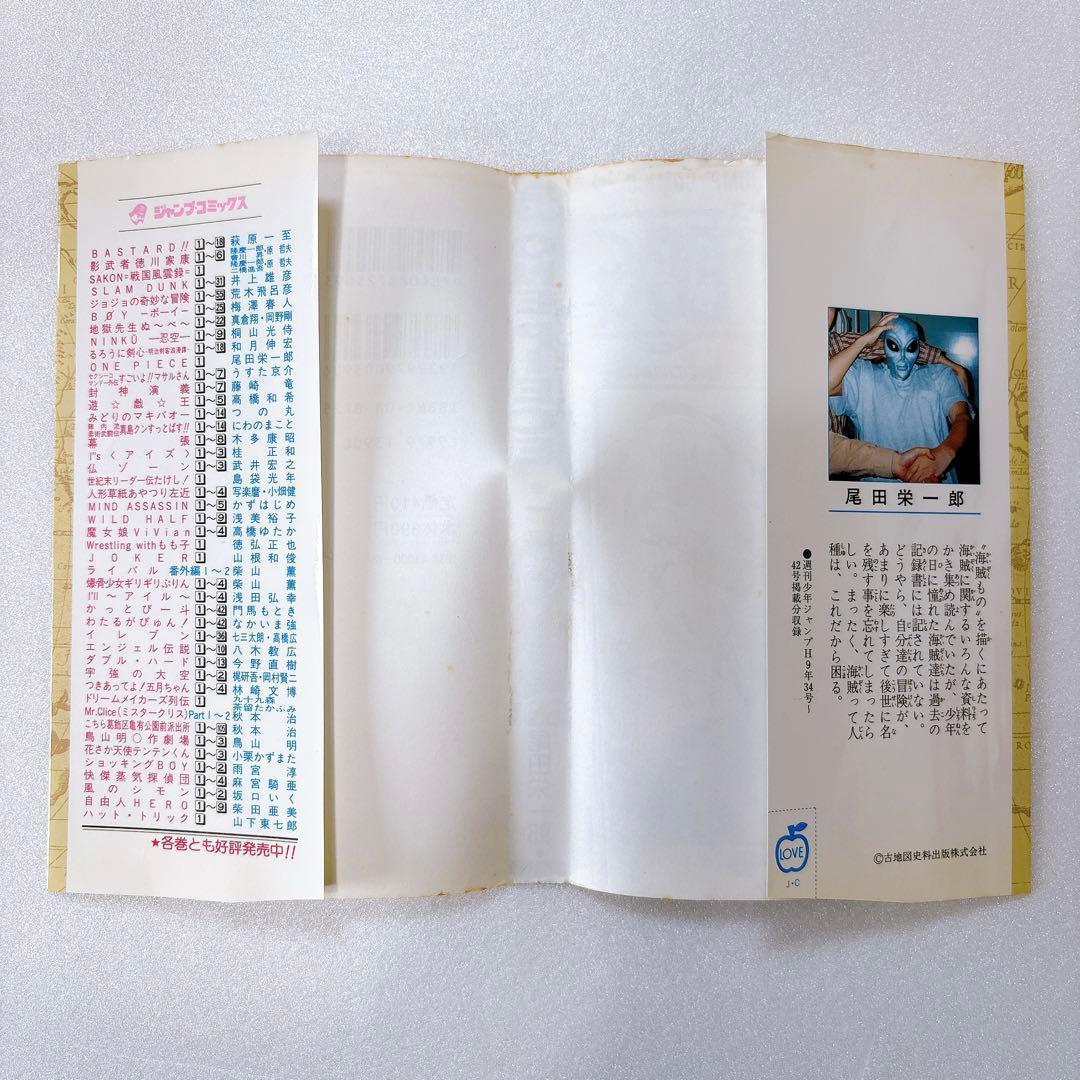 ジャンプコミックス
BASTARD!! 1〜18 萩原一至
影武者徳川家康 1〜6 隆慶一郎・原哲夫 會川昇
SAKON=戦国風雲録= 1 隆慶一郎・原哲夫 二橋進吾
SLAM DUNK 1〜31 井上雄彦
ジョジョの奇妙な冒険 荒木飛呂彦
BØY ―ボーイ― 梅澤春人
地獄先生ぬ〜べ〜 1〜22 真倉翔・岡野剛
NINKŪ ―忍空― 1〜9 桐山光侍
るろうに剣心 ―明治剣客浪漫譚― 1〜18 和月伸宏
ONE PIECE 1 尾田栄一郎
セクシーコマンドー外伝 すごいよ!!マサルさん 1〜7 うすた京介
封神演義 1〜7 藤崎竜
遊☆戯☆王 1〜5 高橋和希
みどりのマキバオー 1〜14 つの丸
陣内流柔術武闘伝 真島クンすっとばす!! 1〜14 にわのまこと
幕張 1〜8 木多康昭
I"s〈アイズ〉 1〜3 桂正和
仏ゾーン 1〜3 武井宏之
世紀末リーダー伝たけし! 1 島袋光年
人形草紙あやつり左近 1〜4 写楽麿・小畑健
MIND ASSASSIN 1〜5 かずはじめ
WILD HALF 1〜9 浅美裕子
魔女娘ViVian 1〜4 高橋ゆたか
Wrestling withもも子 1 徳弘正也
JOKER 1 山根和俊
ライバル 番外編1〜2 柴山薫
爆骨少女ギリギリぷりん 1〜4 柴山薫
I'll 〜アイル〜 1〜4 浅田弘幸
かっとび一斗 門馬もとき
わたるがぴゅん! 1〜42 なかいま強
イレブン 七三太朗・高橋広
エンジェル伝説 1〜10 八木教広
ダブル・ハード 1〜13 今野直樹
宇強の大空 1〜2 梶研吾・岡村賢二
つきあってよ!五月ちゃん 1〜4 林崎文博
ドリームメイカーズ列伝 1 九十九森 茶留たかふみ
Mr.Clice(ミスタークリス) Part1〜2 秋本治
こちら葛飾区亀有公園前派出所 秋本治
鳥山明○作劇場 1〜3 鳥山明
花さか天使テンテンくん 1〜3 小栗かずまた
ショッキングBOY 1〜2 雨宮淳
快傑蒸気探偵団 1〜4 麻宮騎亜
風のシモン 1〜2 坂口いく
自由人HERO 1〜9 柴田亜美
ハット・トリック 1 山下東七郎
★各巻とも好評発売中!!
尾田栄一郎
“海賊もの”を描くにあたって
海賊に関するいろんな資料を
かき集め読んでいたが、少年
の日に憧れた海賊達は過去の
記録書には記されていない。
どうやら、自分達の冒険が、
あまりに楽しすぎて後世に名
を残す事を忘れてしまったら
しい。まったく、海賊って人
種は、これだから困る。
●週刊少年ジャンプH9年34号〜
42号掲載分収録
LOVE
J・C
©古地図史料出版株式会社